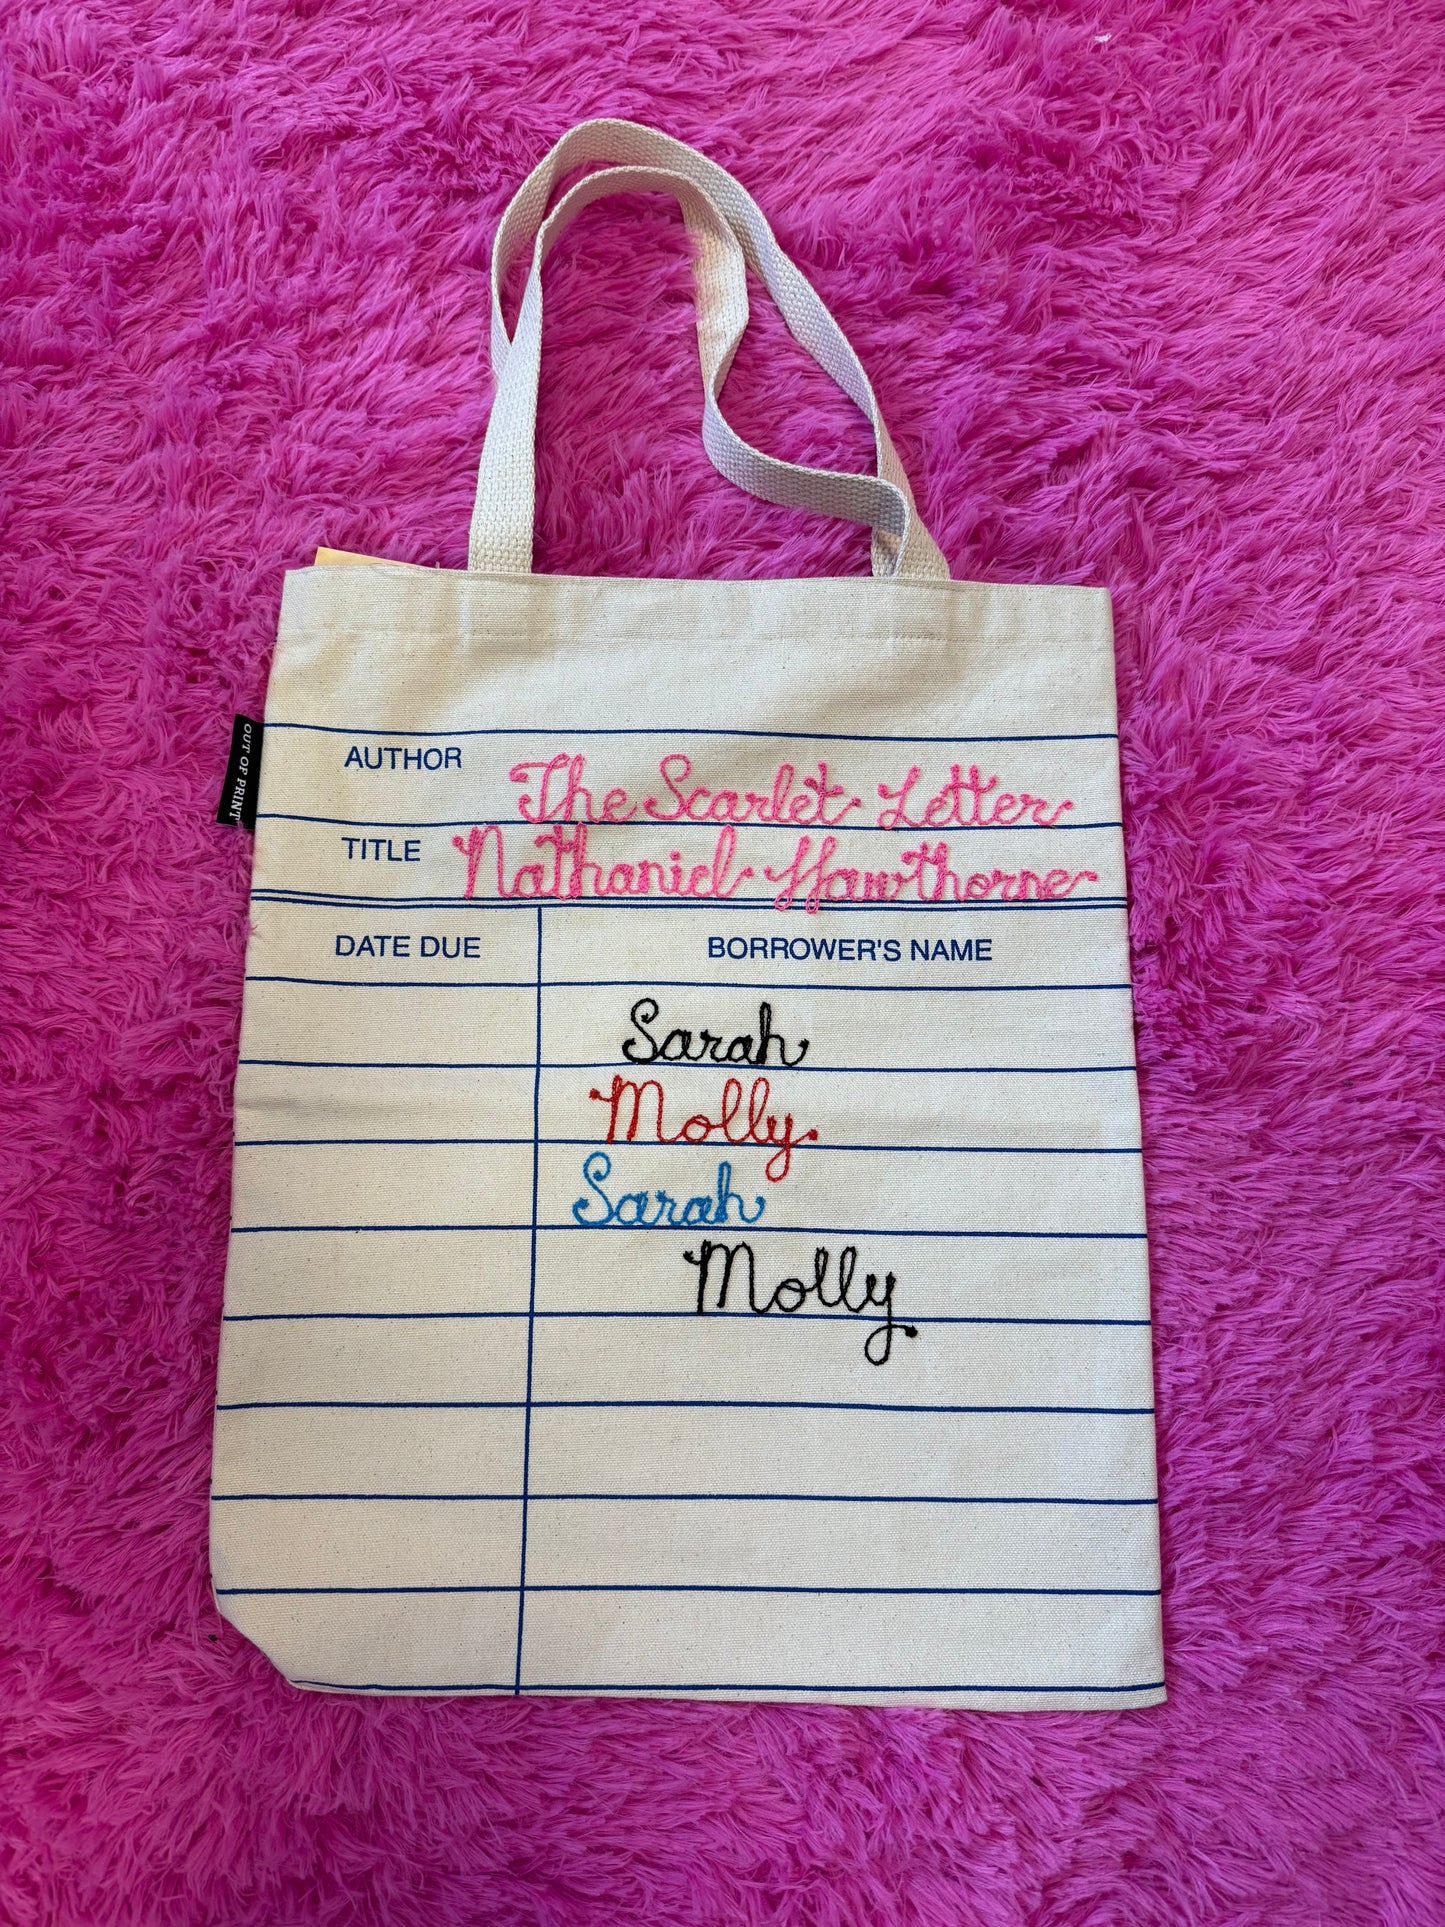 AUTHOR The Scarlet Letter
OUT OF PRINT
TITLE Nathaniel Hawthorne
DATE DUE BORROWER'S NAME
Sarah
Molly
Sarah
Molly